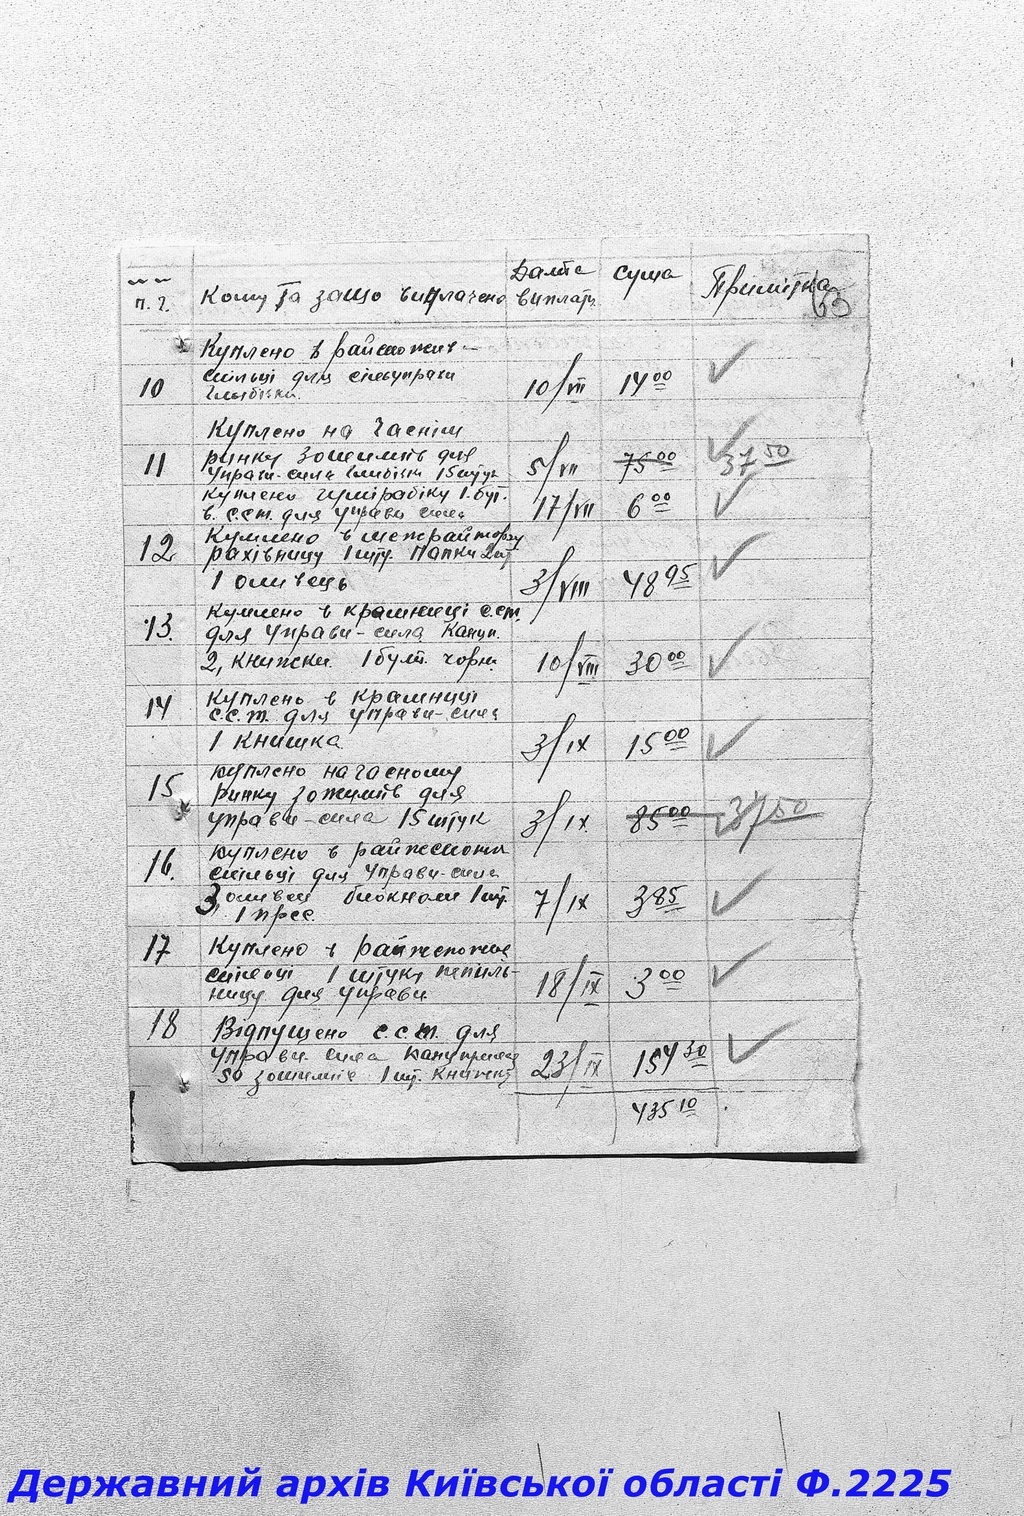 п. ч. Кому та защо виплачено Дата виплати сума Примітка
63
Куплено в райспожив-
10 спільці для сільуправи 10/VII 14 00
Куплено на часнім
11 ринку зошитів для 5/VII 75 00 37 50
управи-сила 15 штук
куплено гуміарабіку 1 бут. 17/VII 6 00
в с.с.т. для управи сила
12 Куплено в межрайторзу
рахівницу 1 шт. папки 2 шт
1 оливець 3/VIII 48 95
13. Куплено в крамниці с.с.т.
для управи-сила Канц.
2, книжки 1 бут. чорн. 10/VIII 30 00
14 Куплено в крамниці
с.с.т. для управи-сила
1 книшка 3/IX 15 00
15 куплено на часному
ринку зожитів для
управи-сила 15 штук 3/IX 85 00 37 50
16. куплено в райспожив
спільці для управи-сила
3, оливці блокноти 1 шт. 7/IX 3 85
1 прес.
17 Куплено в райспожив
спільці 1 штуку пепіль-
ницу для управи 18/IX 3 00
18 Відпущено с.с.т. для
управи сила канцприлад 23/IX 154 30
50 зошитів 1 шт. книжку
435 10
Державний архів Київської області Ф.2225